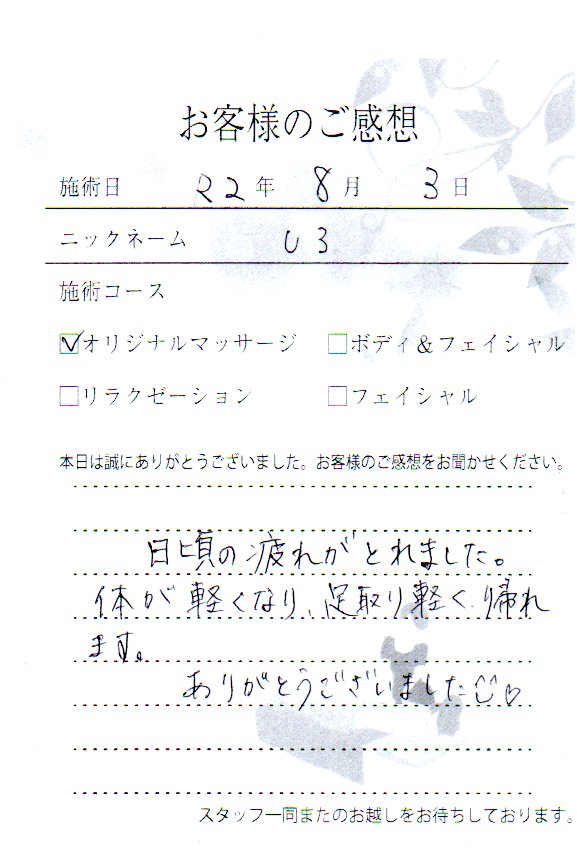 お客様のご感想
施術日 22年 8月 3日
ニックネーム U3
施術コース
☑オリジナルマッサージ □ボディ＆フェイシャル
□リラクゼーション □フェイシャル
本日は誠にありがとうございました。お客様のご感想をお聞かせください。
日頃の疲れがとれました。
体が軽くなり、足取り軽く帰れ
ます。
ありがとうございました
スタッフ一同またのお越しをお待ちしております。